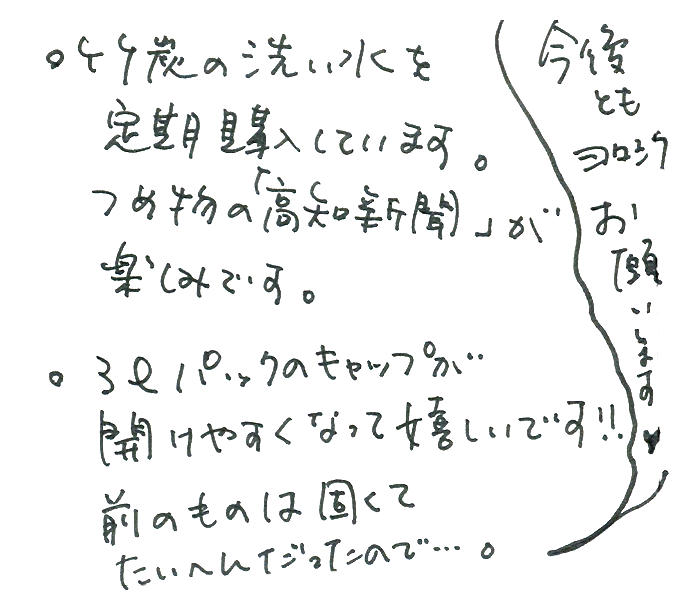 ・竹炭の洗い水を
定期購入しています。
つめ物の「高知新聞」が
楽しみです。
・3ℓパックのキャップが
開けやすくなって嬉しいです!!
前のものは固くて
たいへんだったので…。
今後
とも
ヨロシク
お
願
い
します♥